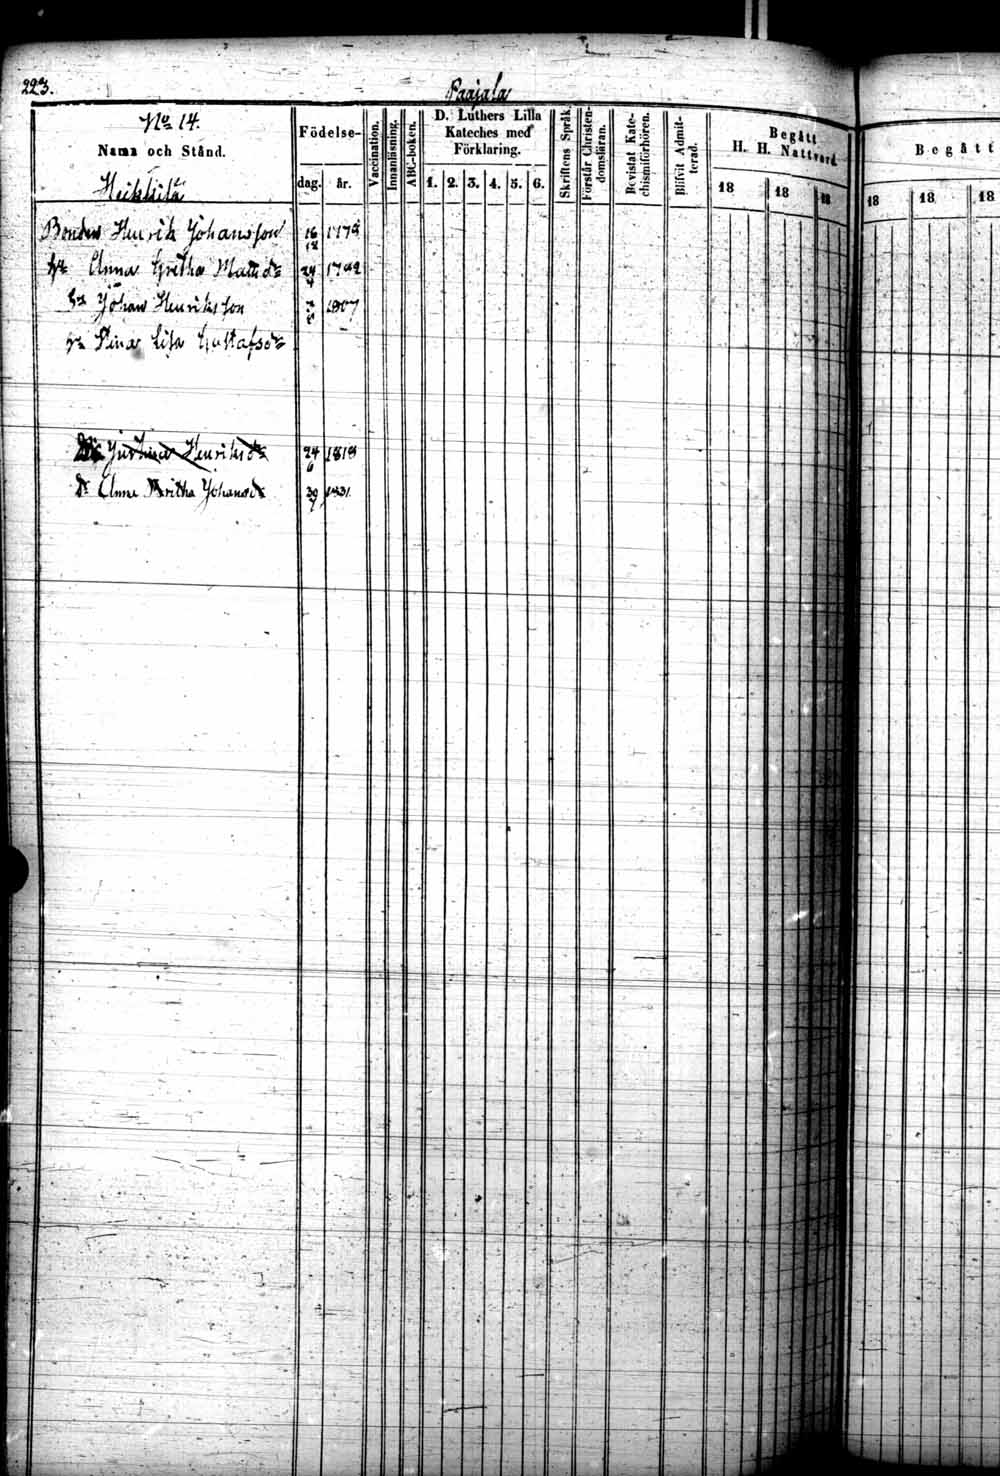 223.
Paajala
No 14.
Namn och Stånd.
Födelse-
dag.
år.
Vaccination.
Innanläsning.
ABC-boken.
D. Luthers Lilla
Kateches med
Förklaring.
1. 2. 3. 4. 5. 6.
Skriftens Språk.
Förstår Christen-
domsläran.
Bevistat Kate-
chismiförhören.
Blifvit Admit-
terad.
Begått
H. H. Nattvard
18 18 18
Begått
18 18 18
Bonden Henrik Johansson 16/12 1779
Hu Anna Gretha Matsdr 24/4 1782
Sn Johan Henriksson 1807
Hu Stina Lisa Gustafsdr
Justina Henriksdr 24/6 1818
Dr Anna Johansdr 30/7 1831